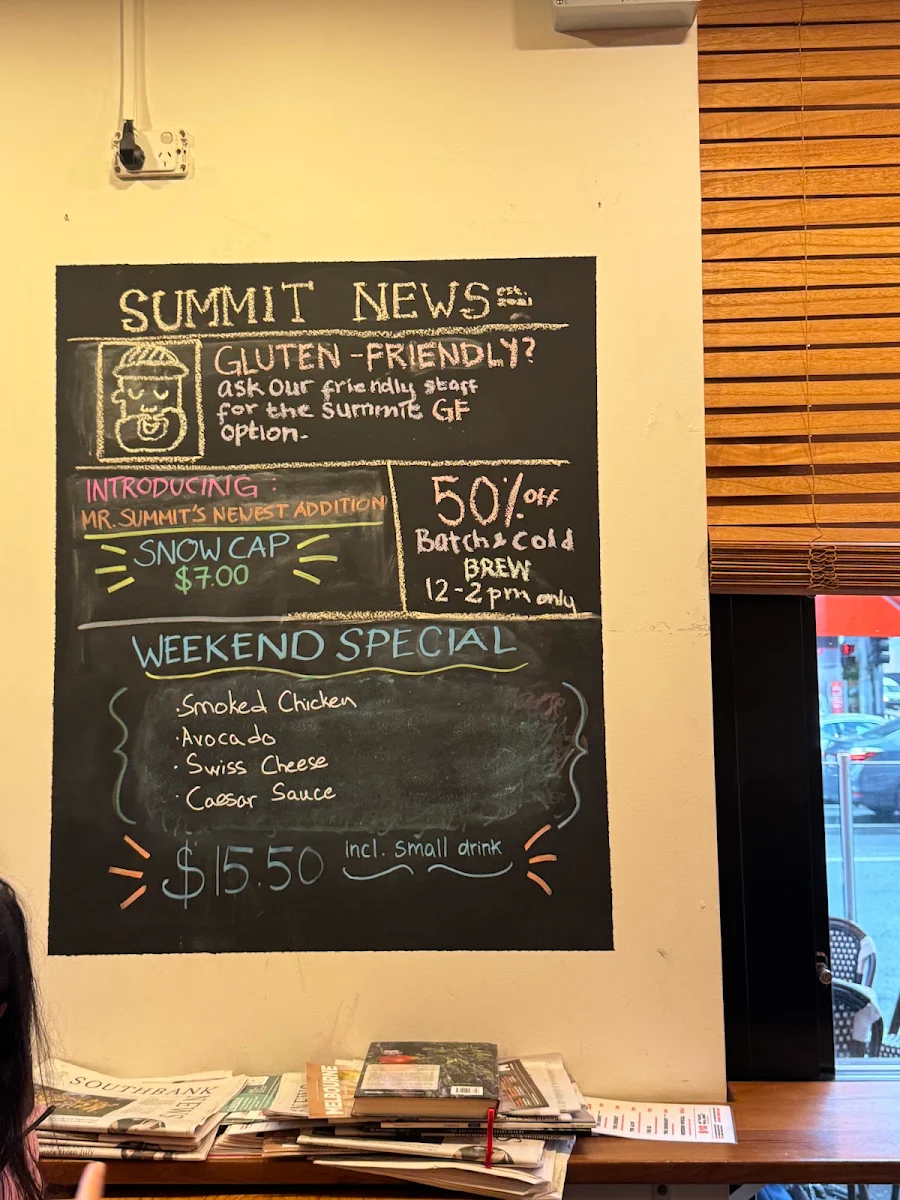 SUMMIT NEWS est.
GLUTEN-FRIENDLY?
ask our friendly staff
for the summit GF
option.
INTRODUCING:
MR. SUMMIT'S NEWEST ADDITION
SNOW CAP
$7.00
50% OFF
Batch & Cold
BREW
12-2pm only
WEEKEND SPECIAL
·Smoked Chicken
·Avocado
·Swiss Cheese
·Caesar Sauce
$15.50 incl. small drink
SOUTHBANK
MELBOURNE